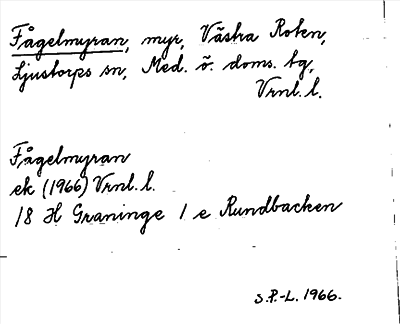 Fågelmyran, myr, Västra Roten,
Ljustorps sn, Med. ö. doms. tg,
Vrnl. l.
Fågelmyran
ek (1966) Vrnl. l.
18 H Graninge 1 e Rundbacken
S.P.-L. 1966.